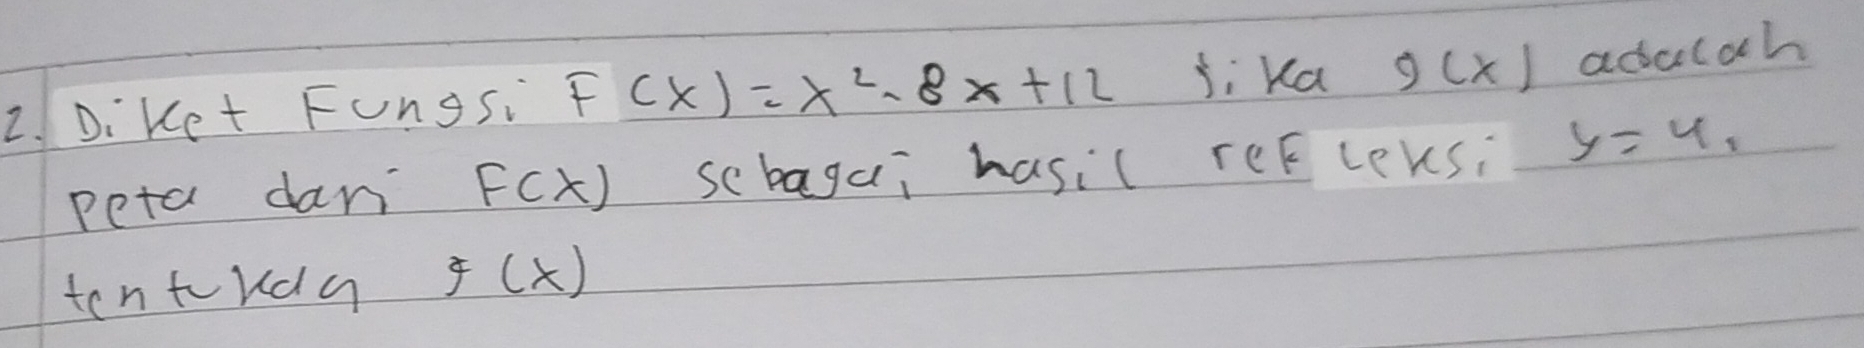 2. Diket Fungsi F(x) = x² - 8x + 12 Jika g(x) adalah
peta dari F(x) sebagai hasil refleksi y = 4.
tentukan g(x)